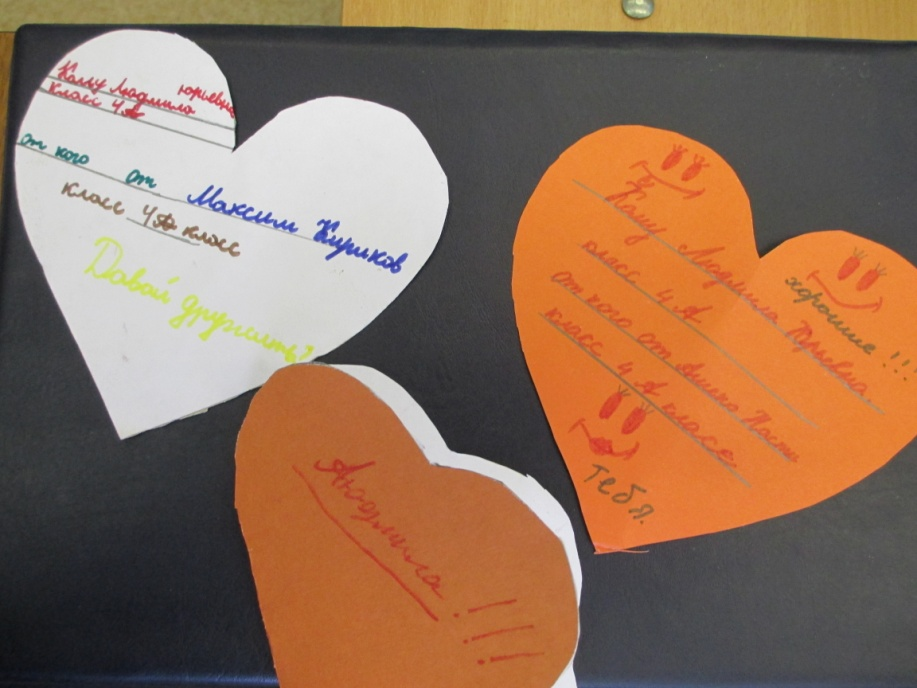 Кому Людмила Юрьевна
класс 4 А
от кого от Максим Кириков
класс 4 А класс
Давай дружить?
Кому Людмила Юрьевна
класс 4 А
от кого от
класс 4 А класс
хорошие !!!
тебя.
Людмила !!!